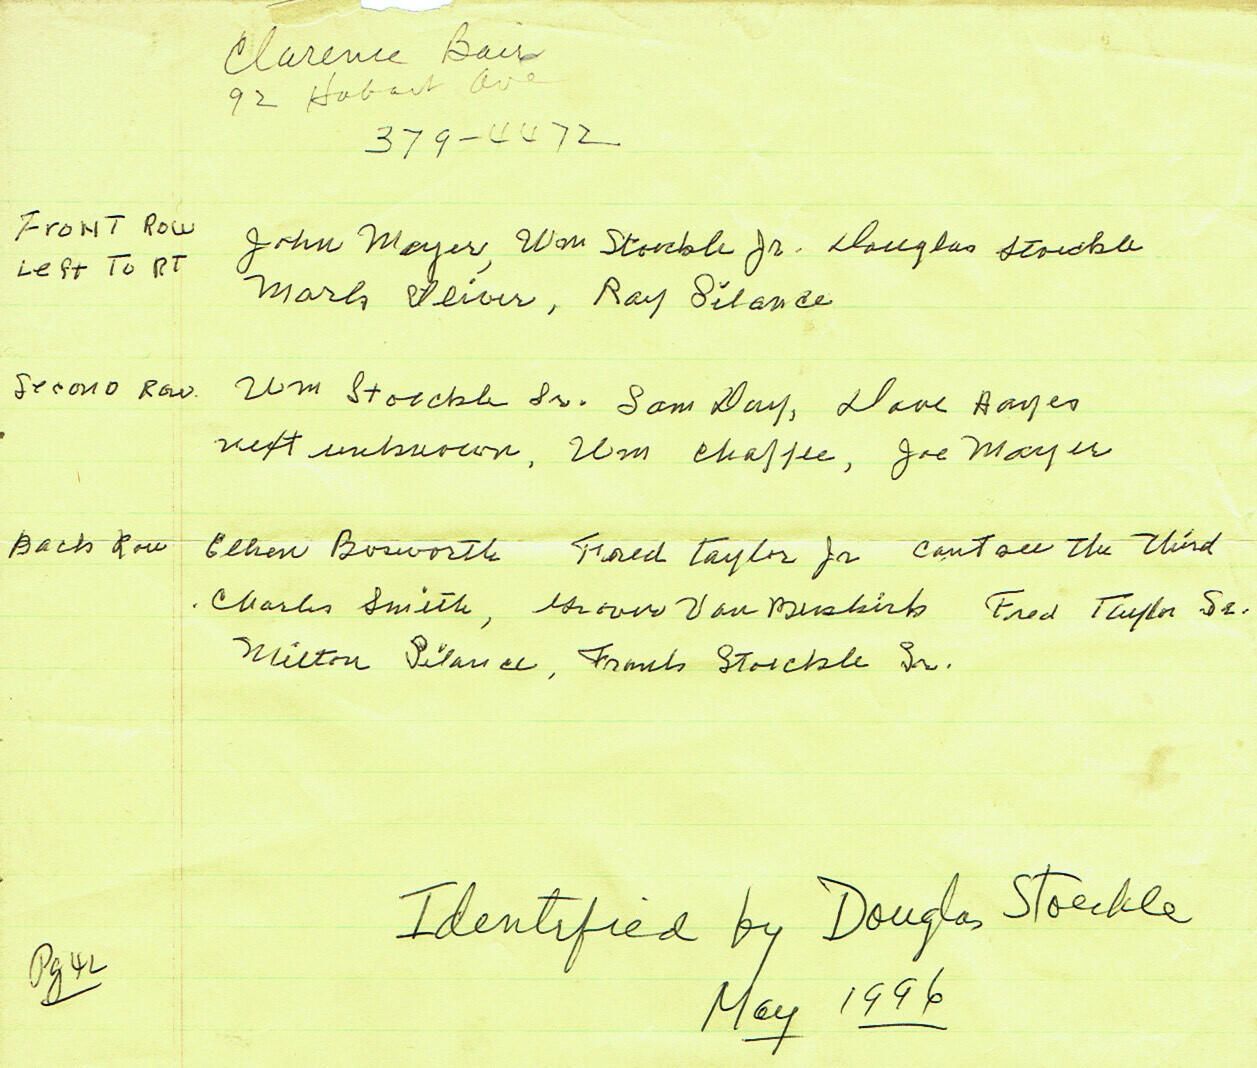 Clarence Bair
92 Hobart Ave
379-4472
Front Row John Mayer, Wm Stoeckle Jr. Douglas Stoeckle
Left To RT Mark Oliver, Ray Silance
Second Row Wm Stoeckle Sr. Sam Day, Dave Hayes
next unknown, Wm Chaffee, Joe Mayer
Back Row Bosworth Fred Taylor Jr cant see the third
Charles Smith, Grover Van Buskirk Fred Taylor Sr.
Milton Silance, Frank Stoeckle Sr.
Identified by Douglas Stoeckle
May 1996
Pg 42